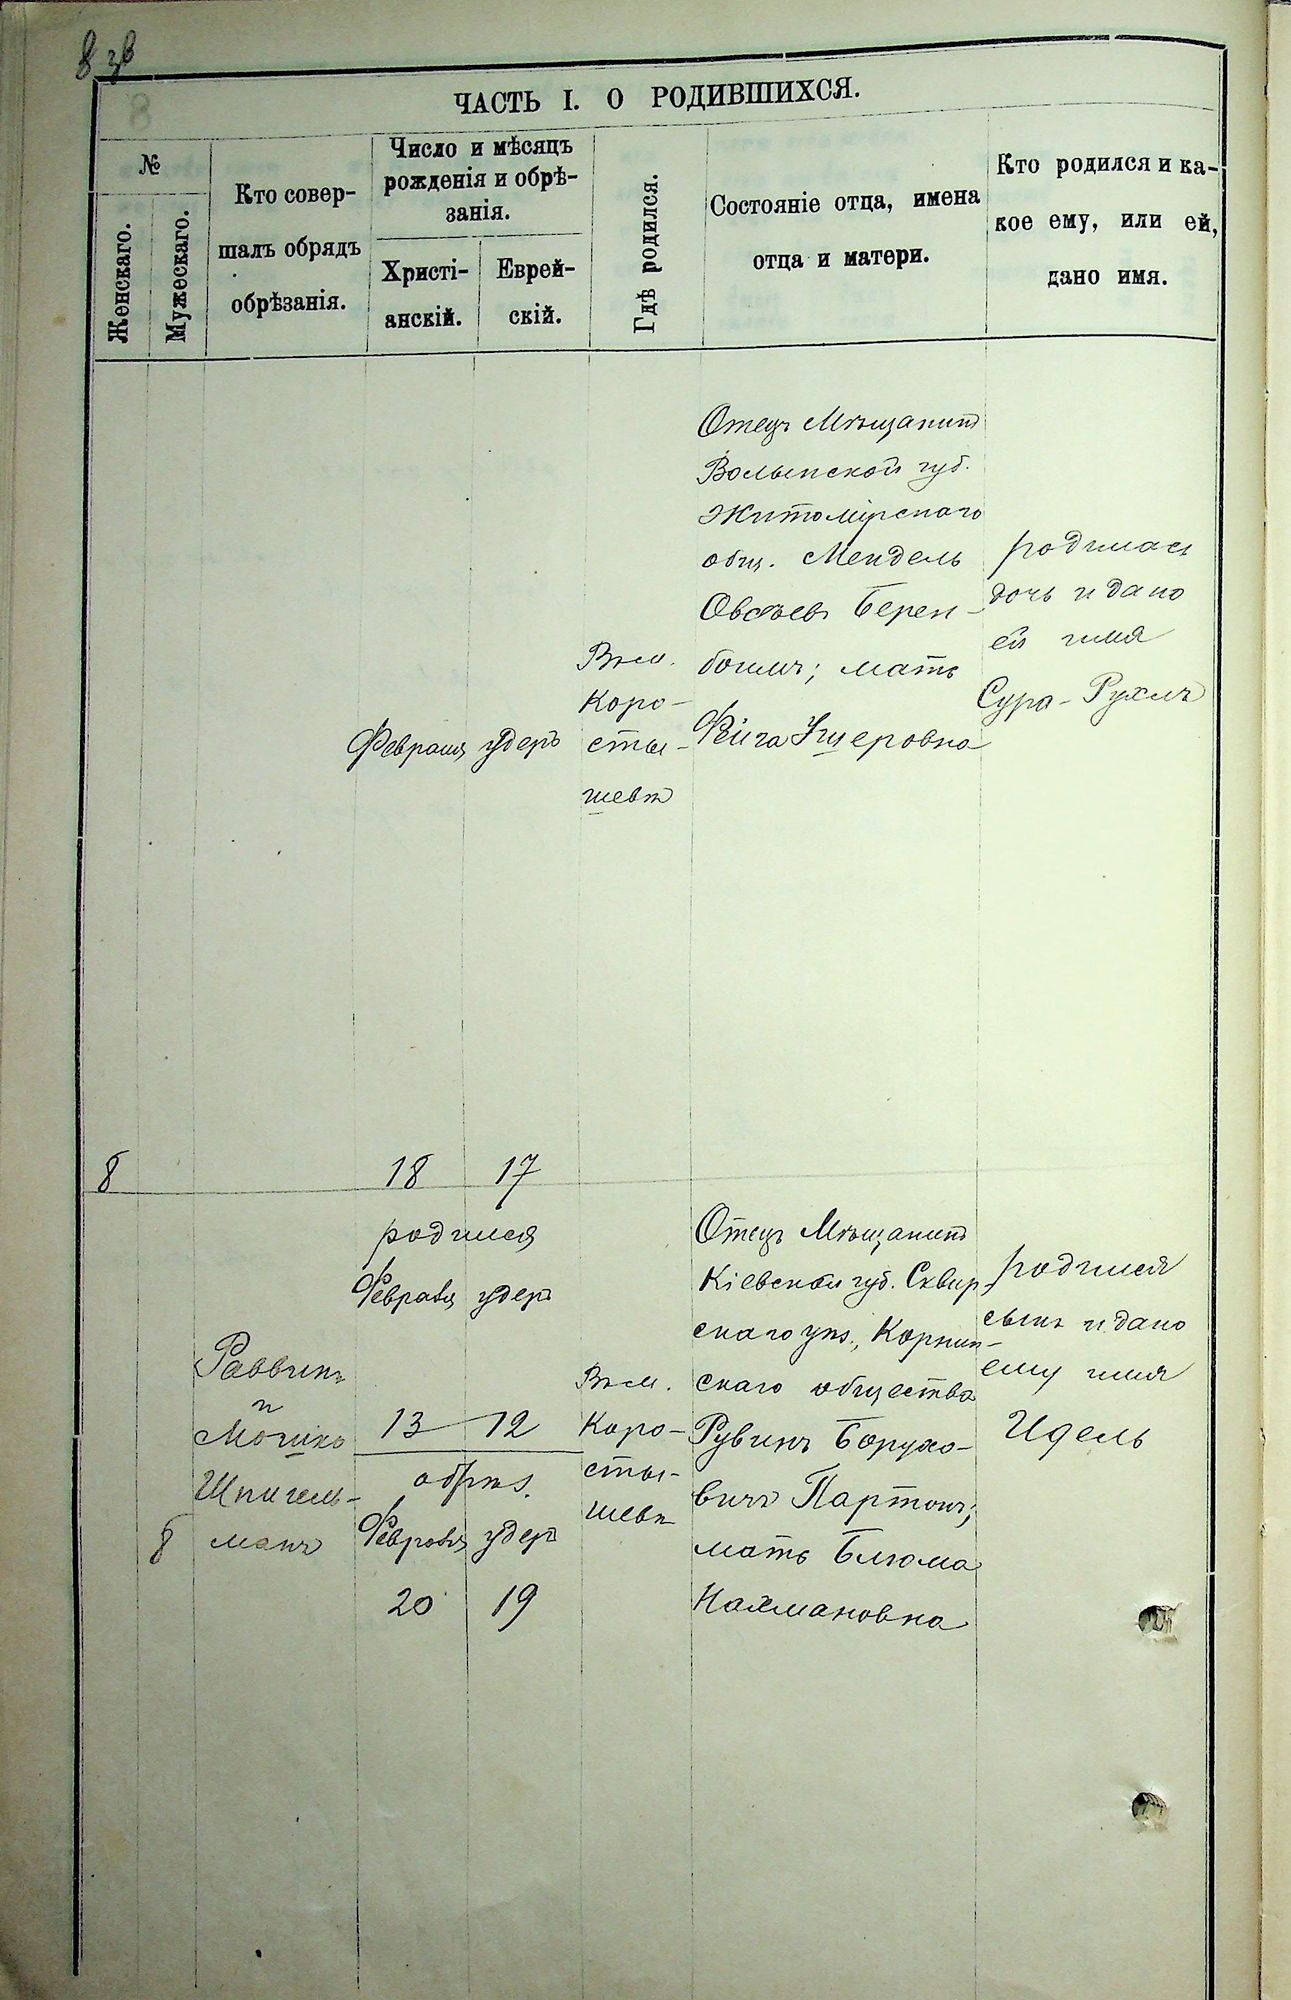 8 зв
ЧАСТЬ I. О РОДИВШИХСЯ.
№
Женскаго.
Мужескаго.
Кто совер-
шалъ обрядъ
обрѣзанія.
Число и мѣсяцъ
рожденія и обрѣ-
занія.
Христі-
анскій.
Еврей-
скій.
Гдѣ родился.
Состояніе отца, имена
отца и матери.
Кто родился и ка-
кое ему, или ей,
дано имя.
8
Февраля
18
удеръ
17
Въ м.
Коро-
сты-
шевѣ
Отецъ Мѣщанинъ
Волынской губ.
Житомірскаго
общ. Мендель
Овсѣевъ Берен-
боимъ; мать
Фейга Ушеровна
родилась
дочь и дано
ей имя
Сура-Рухль
8
Раввинъ
и
Мошко
Шпигель-
манъ
родился
Февраля удеръ
13 12
обрѣз.
Февраля удеръ
20 19
Въ м.
Коро-
сты-
шевѣ
Отецъ Мѣщанинъ
Кіевской губ. Сквир
скаго уѣз., Корнин-
скаго общества
Рувинъ Борухо-
вичъ Партонъ;
мать Блюма
Нахмановна
родился
сынъ и дано
ему имя
Идель